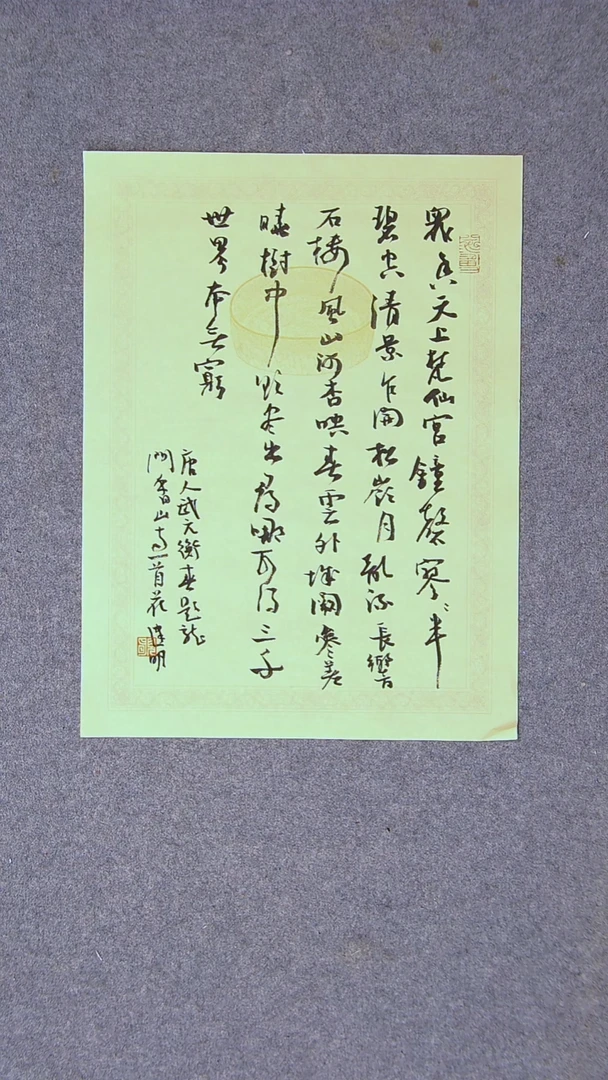 眾香天上梵仙宮鐘磬寥〻半
碧空清景乍開松嶺月亂流長響
石楼風山河杳映春雲外城闕參差
樹中欲盡出尋哪可得三千
世界本無窮
唐人武元衡春題龍
門香山寺一首花明